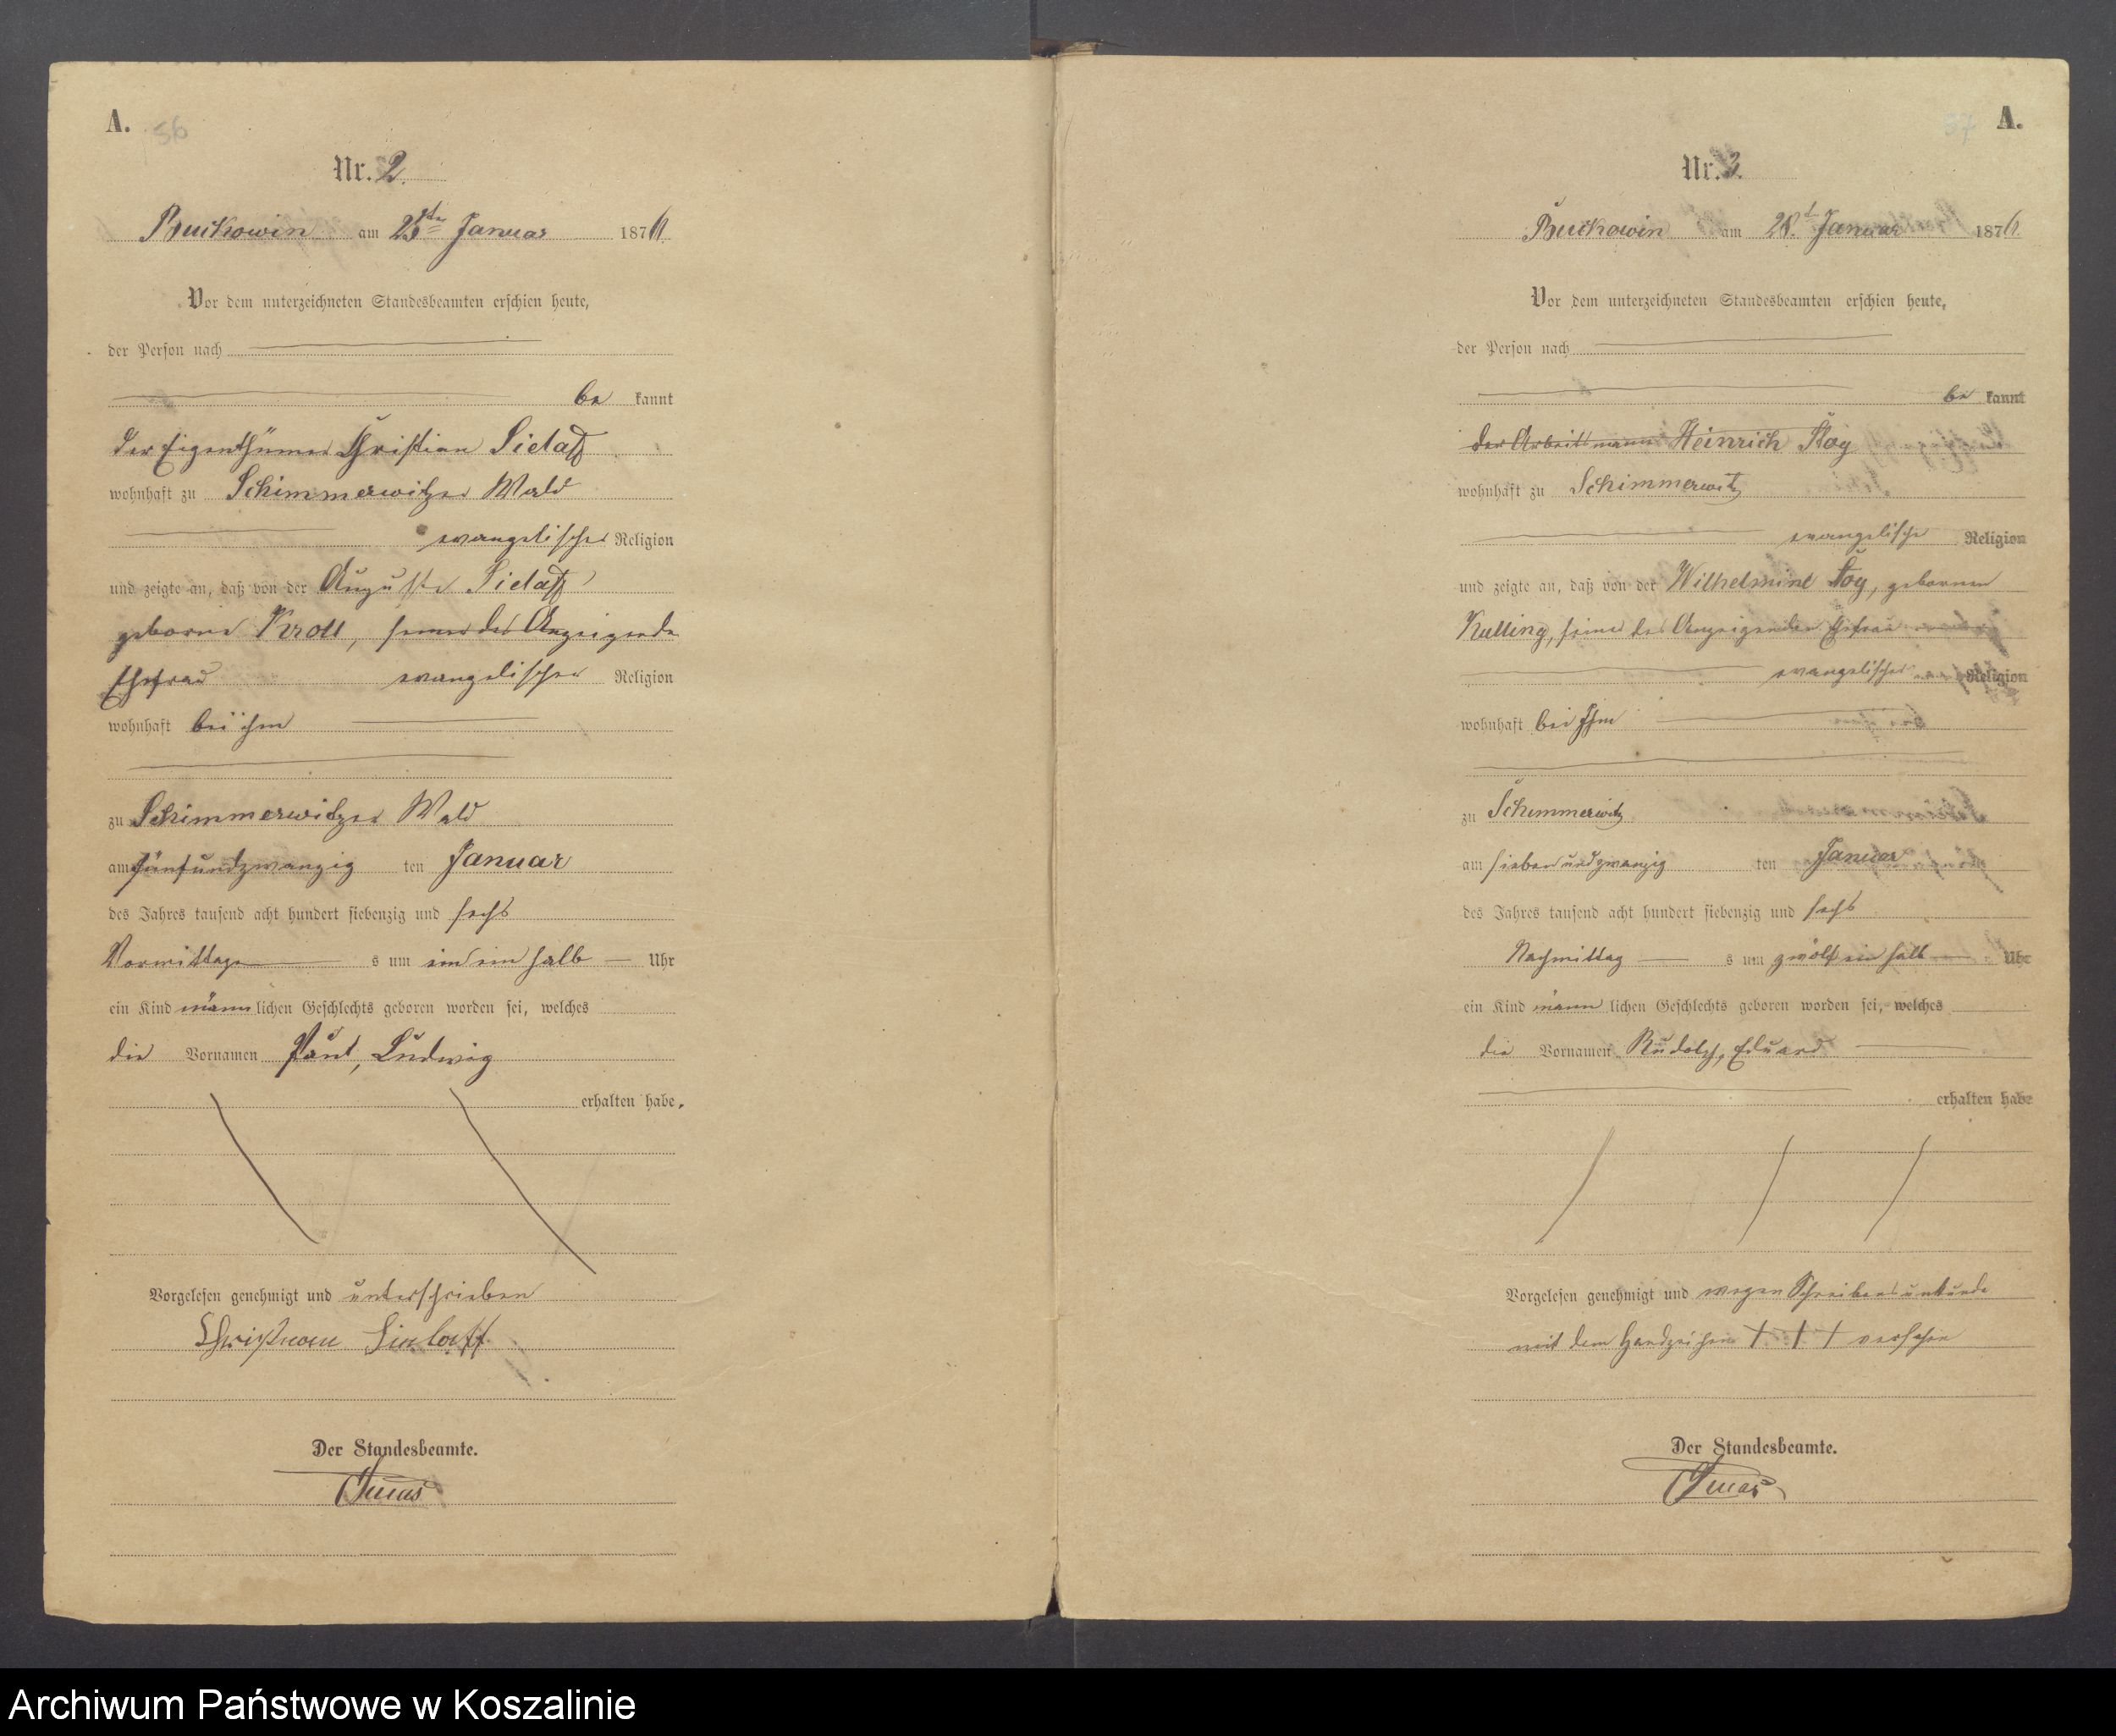 A. 56
Nr. 2.
Buckowin am 25ten Januar 1876.
Vor dem unterzeichneten Standesbeamten erschien heute,
der Person nach
be kannt
der Eigenthümer Christian Sielaff
wohnhaft zu Schimmerwitzer Wald
evangelischer Religion
und zeigte an, daß von der Auguste Sielaff
geborne Kroll, seiner des Anzeigende
Ehefrau evangelischer Religion
wohnhaft bei ihm
zu Schimmerwitzer Wald
am fünfundzwanzig ten Januar
des Jahres tausend acht hundert siebenzig und sechs
Vormittags um ein halb Uhr
ein Kind männlichen Geschlechts geboren worden sei, welches
die Vornamen Paul, Ludwig
erhalten habe.
Vorgelesen genehmigt und unterschrieben
Christian Sielaff
Der Standesbeamte.
37 A.
Nr. 3.
Buckowin am 28.t Januar 1876.
Vor dem unterzeichneten Standesbeamten erschien heute,
der Person nach
be kannt
der Arbeitmann Heinrich
wohnhaft zu Schimmerwitz
evangelische Religion
und zeigte an, daß von der Wilhelmine gebornen
seiner des Anzeigenden Ehefrau
evangelischer Religion
wohnhaft bei Ihm
zu Schimmerwitz
am siebenundzwanzig ten Januar
des Jahres tausend acht hundert siebenzig und sechs
Nachmittag s um zwölf ein halb Uhr
ein Kind männ lichen Geschlechts geboren worden sei, welches
die Vornamen Rudolph, Eduard
erhalten habe
Vorgelesen genehmigt und wegen Schreibensunkunde
mit dem Handzeichen + + + versehen
Der Standesbeamte.
Archiwum Państwowe w Koszalinie